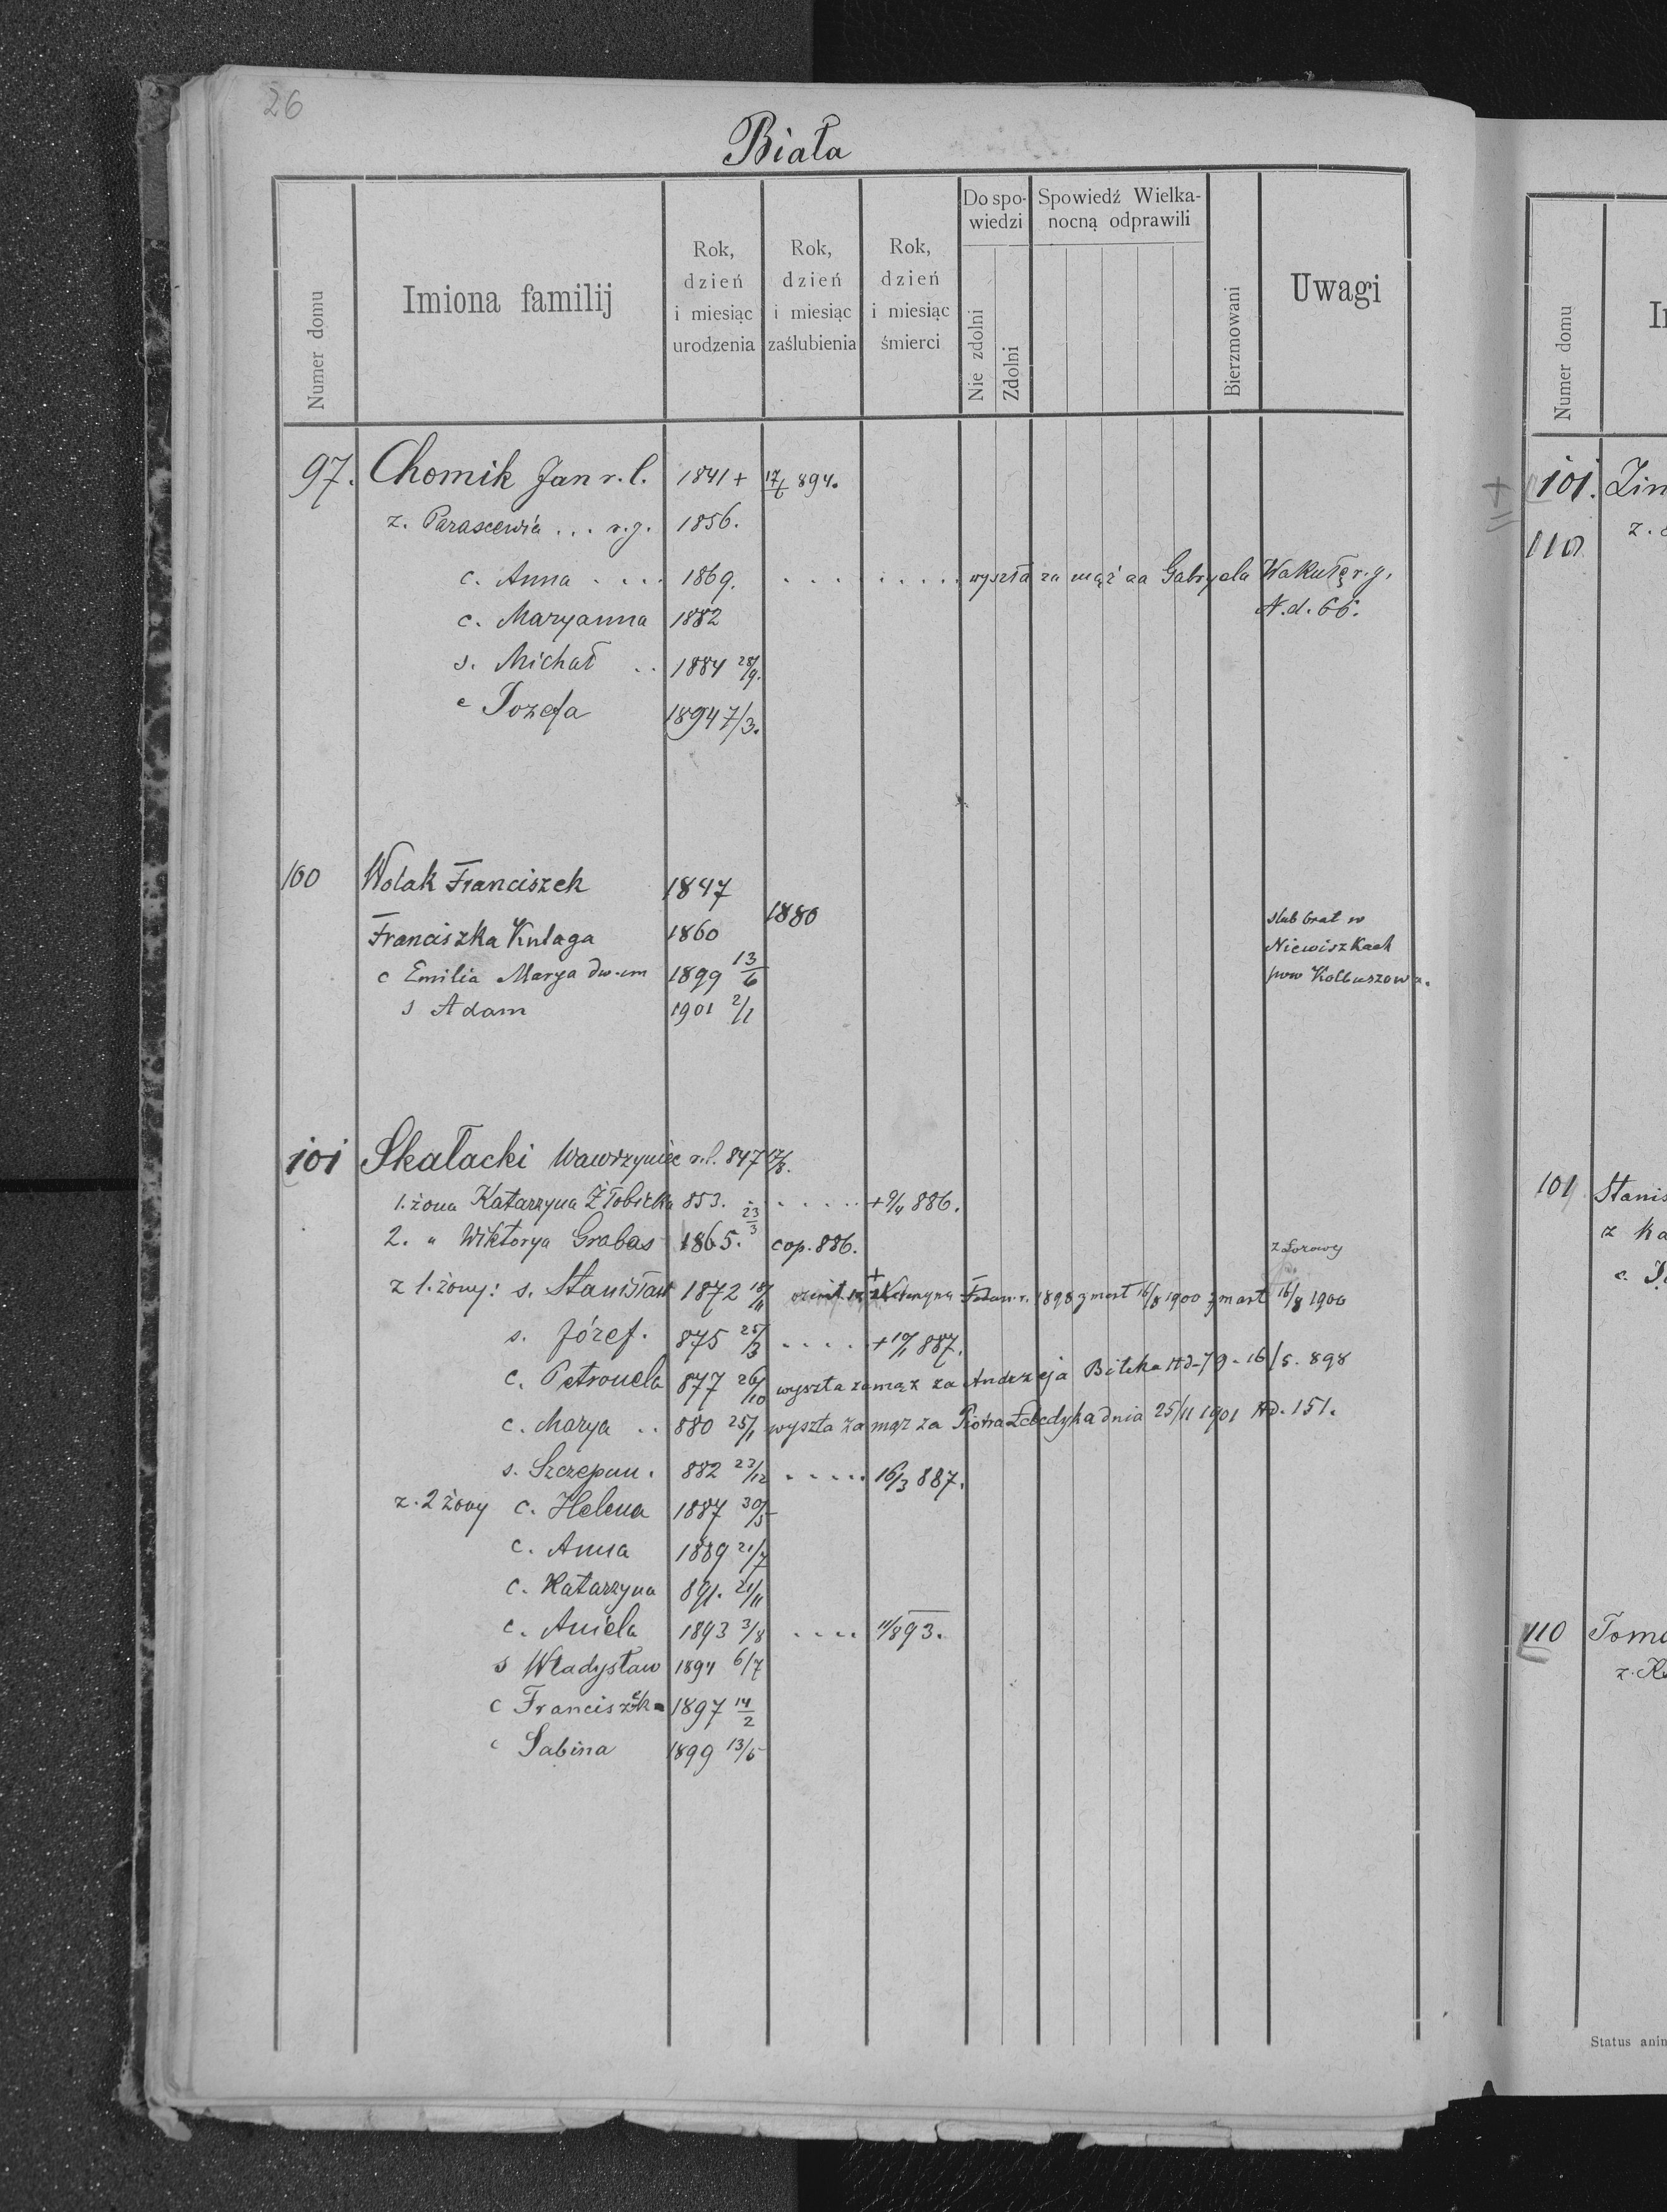 26
Biała
Numer domu
Imiona familij
Rok, dzień i miesiąc urodzenia
Rok, dzień i miesiąc zaślubienia
Rok, dzień i miesiąc śmierci
Do spowiedzi
Nie zdolni
Zdolni
Spowiedź Wielkanocną odprawili
Bierzmowani
Uwagi
97. Chomik Jan r. l. 1841 + 17/6 894.
z. Parascewia ... r. g. 1856.
c. Anna .... 1869. ......... wyszła za mąż za Gabryela Wakułę r. g.
N. d. 66.
c. Maryanna 1882
s. Michał .. 1884 28/9.
c Jozefa 1894 7/3.
100 Wolak Franciszek 1847
1880
Franciszka Kulaga 1860
slub brat w
Niewiszkach
pow Kolbuszowa.
c Emilia Marya dw-im 1899 13/6
s Adam 1901 2/1
101 Skałacki Wawrzyniec r. l. 847 17/8.
1. żona Katarzyna Żłobicka 853. ....... + 9/4 886.
2. " Wiktorya Grabas 1865. 23/3 cop. 886.
z 1. żony: s. Stanisław 1872 18/11 1898 zmarł 16/8 1900 zmarł 16/8 1900
s. Józef. 875 25/3 ..... + 10/1 887.
c. Petronela 877 26/10 wyszła zamąż za Andrzeja Bileka Nd-79-16/5. 898
c. Marya .. 880 25/1 wyszła za mąż za Piotra Łebedyka dnia 25/11 1901 Nd. 151.
s. Szczepan. 882 23/12 ..... 16/3 887.
z. 2 żony c. Helena 1887 30/5
c. Anna 1889 21/7
c. Katarzyna 891. 21/11
c. Aniela 1893 3/8 .... 11/8 93.
s Władysław 1894 6/7
c Franciszka 1897 14/2
c Sabina 1899 13/5
Numer domu
101.
110
z.
101 Stanis
z Ka
c.
110 Toma
z.
Status anim